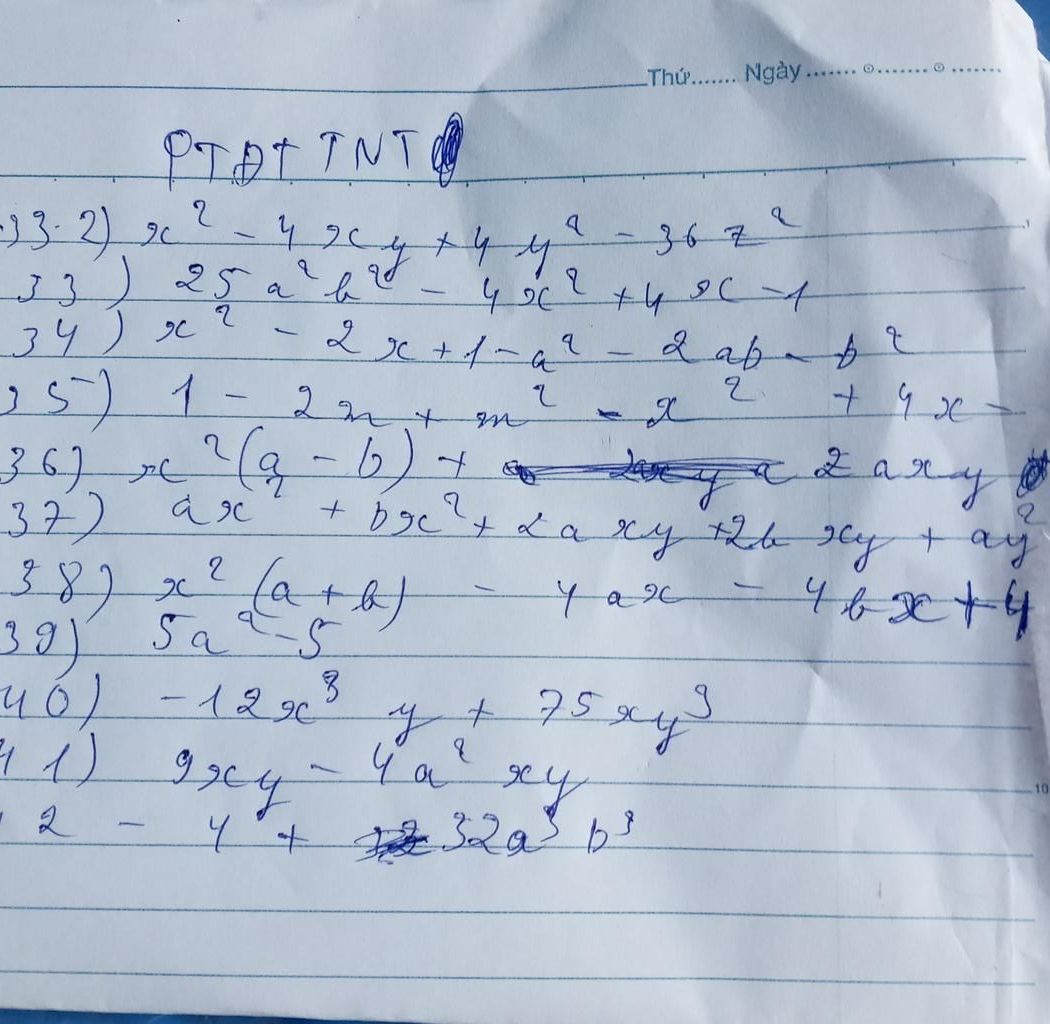 Thứ....... Ngày ....... ....... .......
PTĐT TNT
33.2) x² - 4xy + 4y² - 36z²
33) 25a²b² - 4x² + 4x - 1
34) x² - 2x + 1 - a² - 2ab - b²
35) 1 - 2m + m² - x² + 4x -
36) x²(a - b) + 2axy
37) ax² + bx² + 2axy + 2bxy + ay²
38) x²(a + b) - 4ax - 4bx + 4
39) 5a² - 5
40) -12x³y + 75xy³
41) 9xy - 4a²xy
10
2 - 4 + 32a³b³